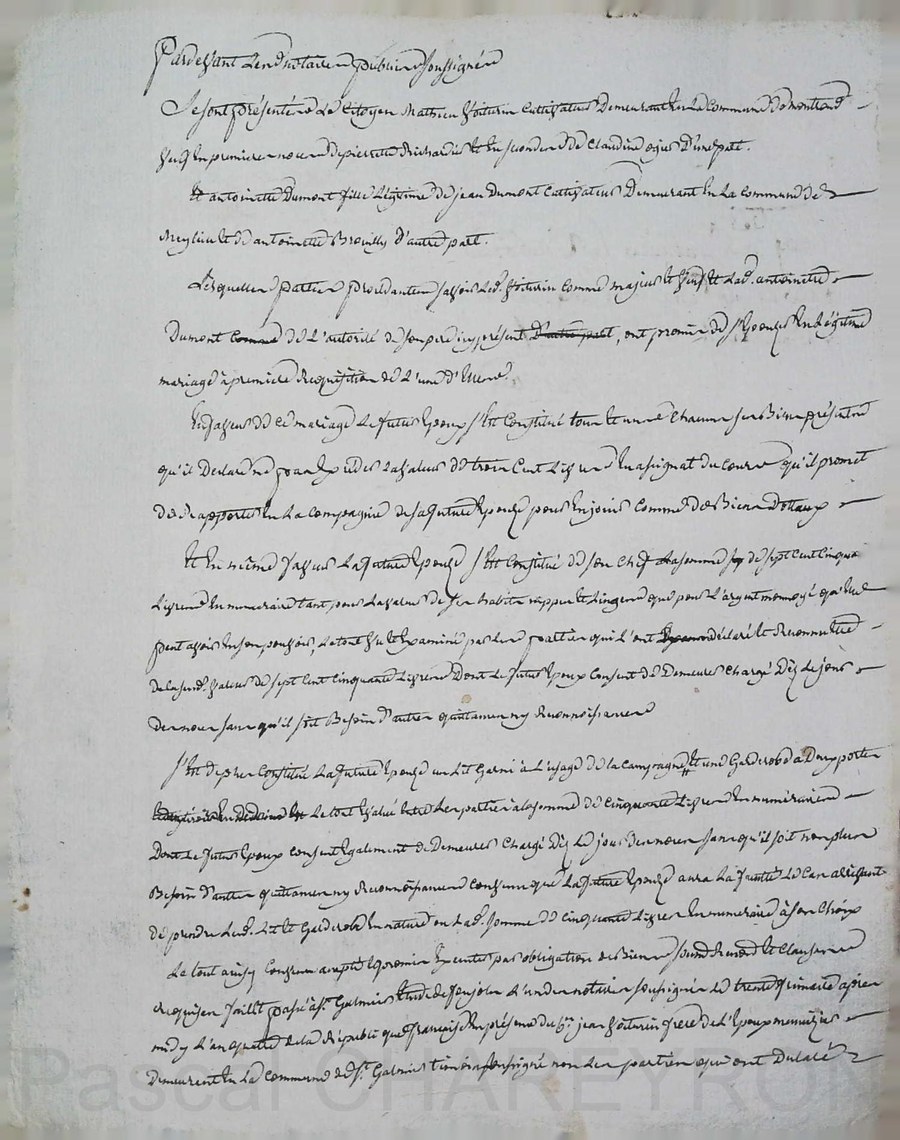 Pardevant Les notaires publics soussignés
Se sont présentés Le Citoyen Mathieu Voiturin Cultivateur Demeurant En La Commune de montrond
Veuf En premieres noces de pierrette Richard Et En secondes de Claudine D'une part.
Et antoinette Dumont fille Légitime de jean Dumont Cultivateur Demeurant En La Commune de
Meylieu Et de antoinette Brouilly D'autre part.
Lesquelles parties procedantes savoir Led. Voiturin Comme majeur Et Veuf Et Lad. antoinette
Dumont de L'autorité de son pere icy présent D'autre part, ont promis de s'Epouser En Légitime
mariage à premiere Requisition de L'une d'Elles
En faveur de Ce mariage Le futur Epoux s'Est Constitué tous Et uns Chacuns ses Biens présents
qu'il Declare ne pas Exceder La valeur de trois Cent Livres En assignat du cours qu'il promet
de Rapporter En La Compagnie de sa future Epouze pour En jouir Comme de Biens Dotaux
Et En même faveur La future Epouze s'Est Constitué de son Chef La somme de sept Cent Cinquante
Livres En numeraire tant pour La valeur de ses habits nippes Et Linges que pour L'argent monnoyé qu'Elle
peut avoir En son pouvoir, Le tout Vu Et Examiné par Les parties qui L'ont déclaré Et Reconnu Etre
de La susd. valeur de sept Cent Cinquante Livres Dont Le futur Epoux Consent de Demeurer Chargé Dez Le jour
des noces sans qu'il soit Besoin d'autres quittances ny Reconnoissances
s'Est de plus Constitué La future Epouze un Lit Garni à L'usage de la Campagne Et une Garderobe a Deux portes
Le tout Evalué Entre Les parties à la somme de Cinquante Livres En numeraire
Dont Le futur Epoux consent Egalement de Demeurer Chargé Dez Le jour Des noces sans qu'il soit non plus
Besoin d'autres quittances ny Reconnoissances convenu que La future Epouze aura La faculté Le Cas arrivant
de prendre Led. Lit Et Garderobe En nature ou Lad. somme de Cinquante Livres En numeraire à son Choix
Le tout ainsy Convenu accepté promis Executer par obligation de Biens soumis Renonc. Et Clauses
Requises fait Et passé à St. Galmier Etude de L'un des notaires soussignés Le trente frimaire après
midy L'an quatre de la République française En présence du Cen. jean Voiturin frere de L'Epoux menuizier
demeurant En La Commune de St. Galmier temoin soussigné non Les parties qui ont Declaré
Pascal CHAREYRON